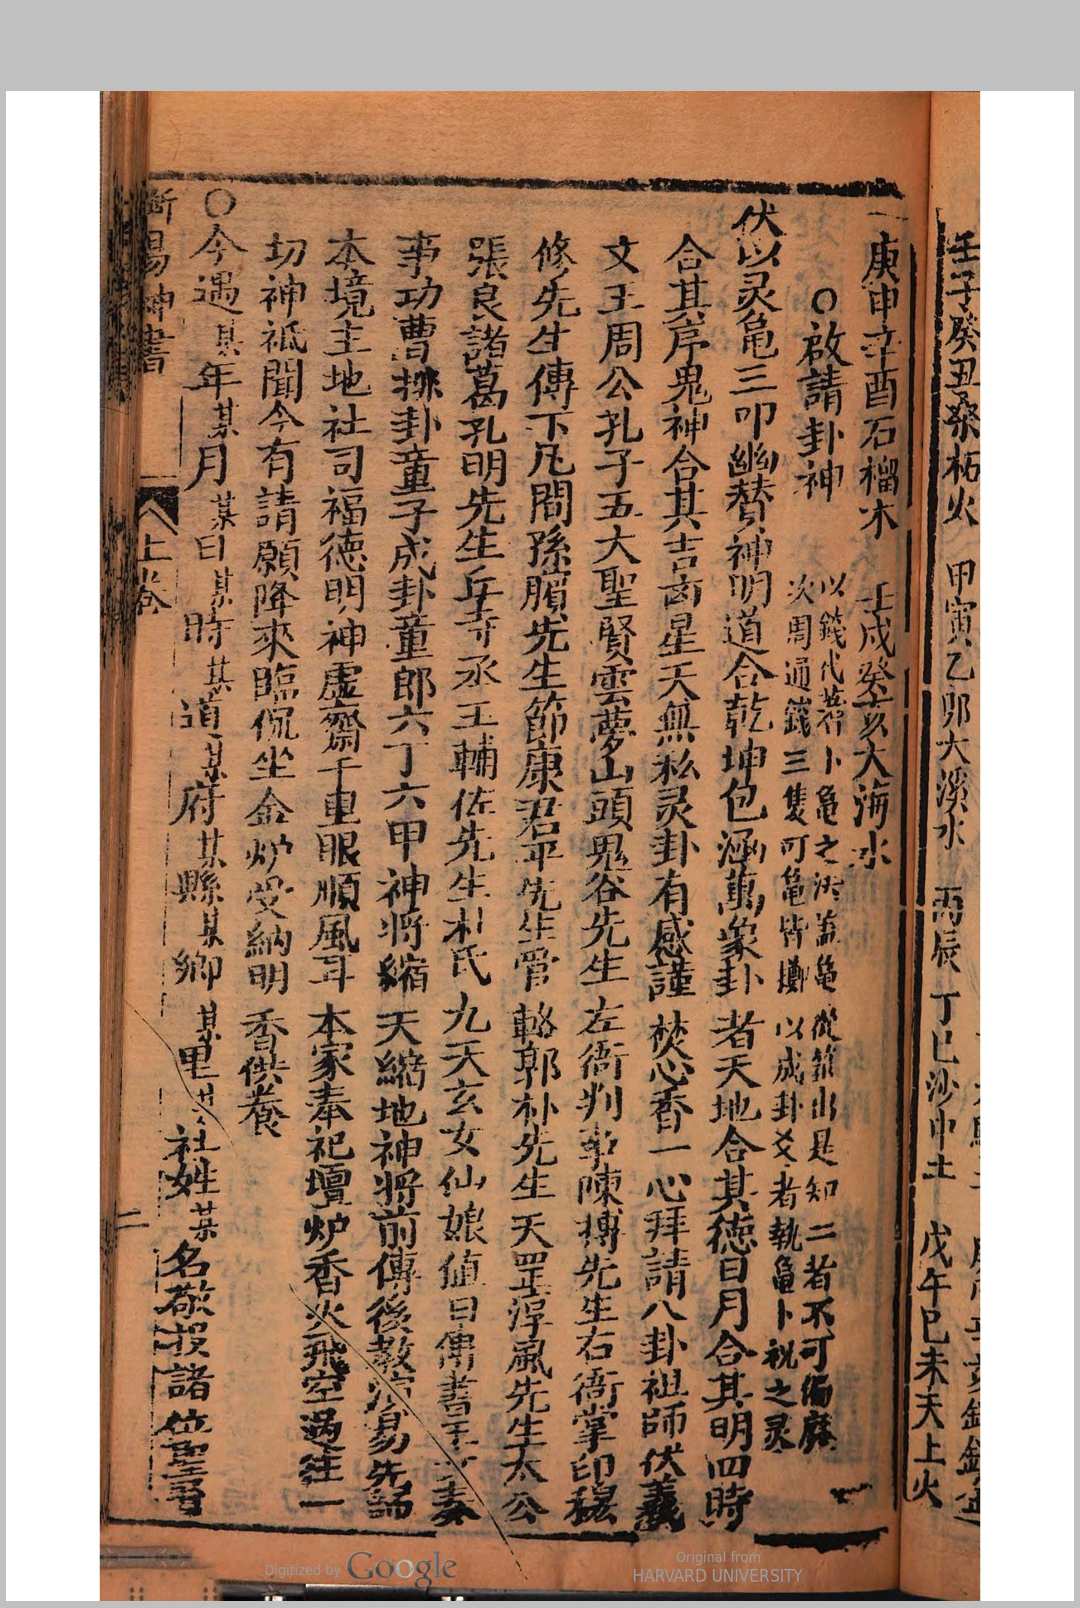 壬子癸丑桑柘火　甲寅乙卯大溪水　丙辰丁巳沙中土　戊午己未天上火
庚申辛酉石榴木　壬戌癸亥大海水
○啟請卦神
以錢代蓍卜龜之法蓋龜從筮出是知二者不可偏廢
次周通錢三隻可龜皆擲以成卦爻者執龜卜祝之灵
伏以灵龜三叩幽賛神明道合乾坤包涵萬象卦者天地合其德日月合其明四時
合其序鬼神合其吉凶星天無私灵卦有感謹焚心香一心拜請八卦祖師伏羲
文王周公孔子五大聖賢雲夢山頭鬼谷先生左衙判事陳摶先生右衙掌印穆
修先生傳下凡間孫臏先生節康君平先生管輅郭朴先生天罡淳風先生太公
張良諸葛孔明先生丘寺丞王輔佐先生朴氏九天玄女仙娘值日傳書玉女奏
事功曹排卦童子成卦童郎六丁六甲神将縮天縮地神将前傳後教演易先師
本境主地社司福德明神虚齋千里眼順風耳本家奉祀壇炉香火飛空過往一
切神祇聞今有請願降來臨侃坐金炉受納明香供養
○今遇某年某月某日某時某道某府某縣某鄉某里某社姓某名敬投諸位聖
斷易神書
上卷
二
Digitized by Google
Original from
HARVARD UNIVERSITY